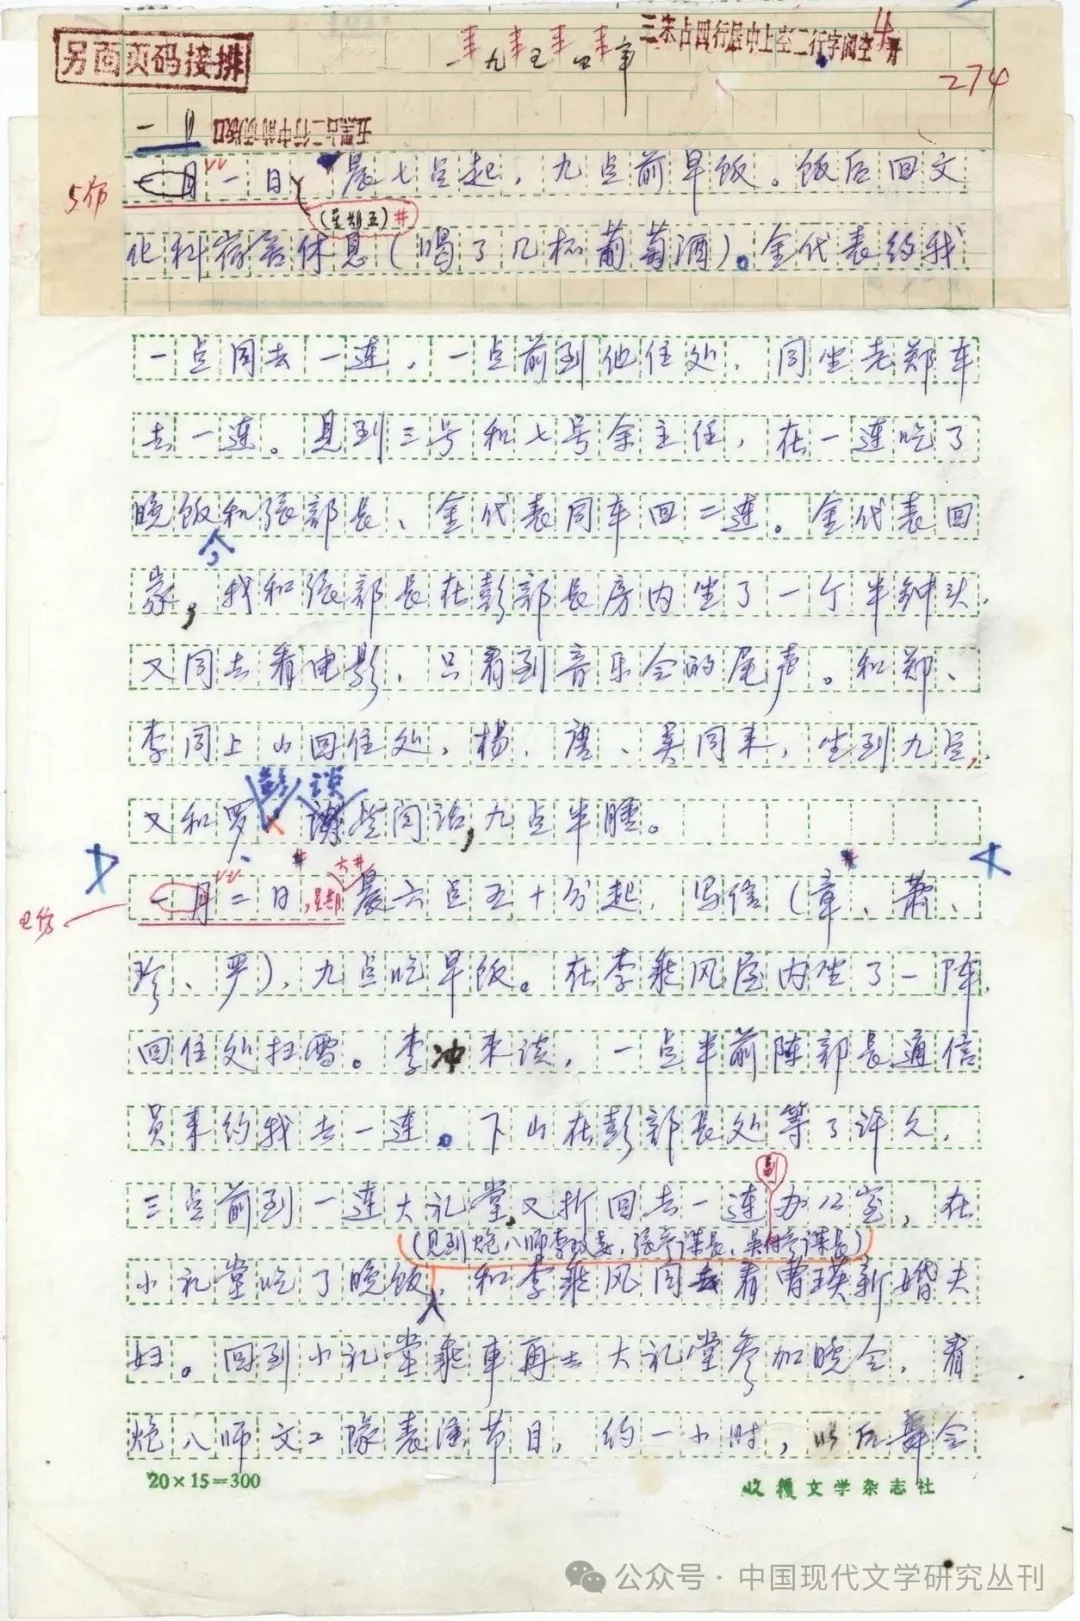 另面页码接排
一九五四年
三宋占四行居中上空二行字间空4
274
一月
五黑占二行中前项版口
5仿
一月一日 晨七点起，九点前早饭。饭后回文
(星期五)#
化科宿舍休息(喝了几杯葡萄酒)。金代表约我
一点同去一连，一点前到他住处，同坐老郑车
去一连。见到三号和七号余主任，在一连吃了
晚饭和张部长、金代表同车回二连。金代表回
家，我和张部长在彭部长房内坐了一个半钟头，
又同去看电影，只看到音乐会的尾声。和郑、
李同上山回住处，杨、谭、吴同来，坐到九点，
彭 谈
又和罗 谢 闲话，九点半睡。
六#
一月二日，星期 晨六点五十分起，写信(章、萧、
5仿
珍、严)，九点吃早饭。在李乘风屋内坐了一阵，
回住处扫雪。李冲来谈，一点半前陈部长通信
员来约我去一连。下山在彭部长处等了许久，
副
三点前到一连大礼堂，又折回去一连办公室，在
(见到炮八师李政委，张 课长，吴 课长)
小礼堂吃了晚饭，和李乘风同去看曹瑛新婚夫
妇。回到小礼堂乘车再去大礼堂参加晚会，看
炮八师文工队表演节目，约一小时，以后舞会
20×15=300
收穫文学杂志社
公众号·中国现代文学研究丛刊